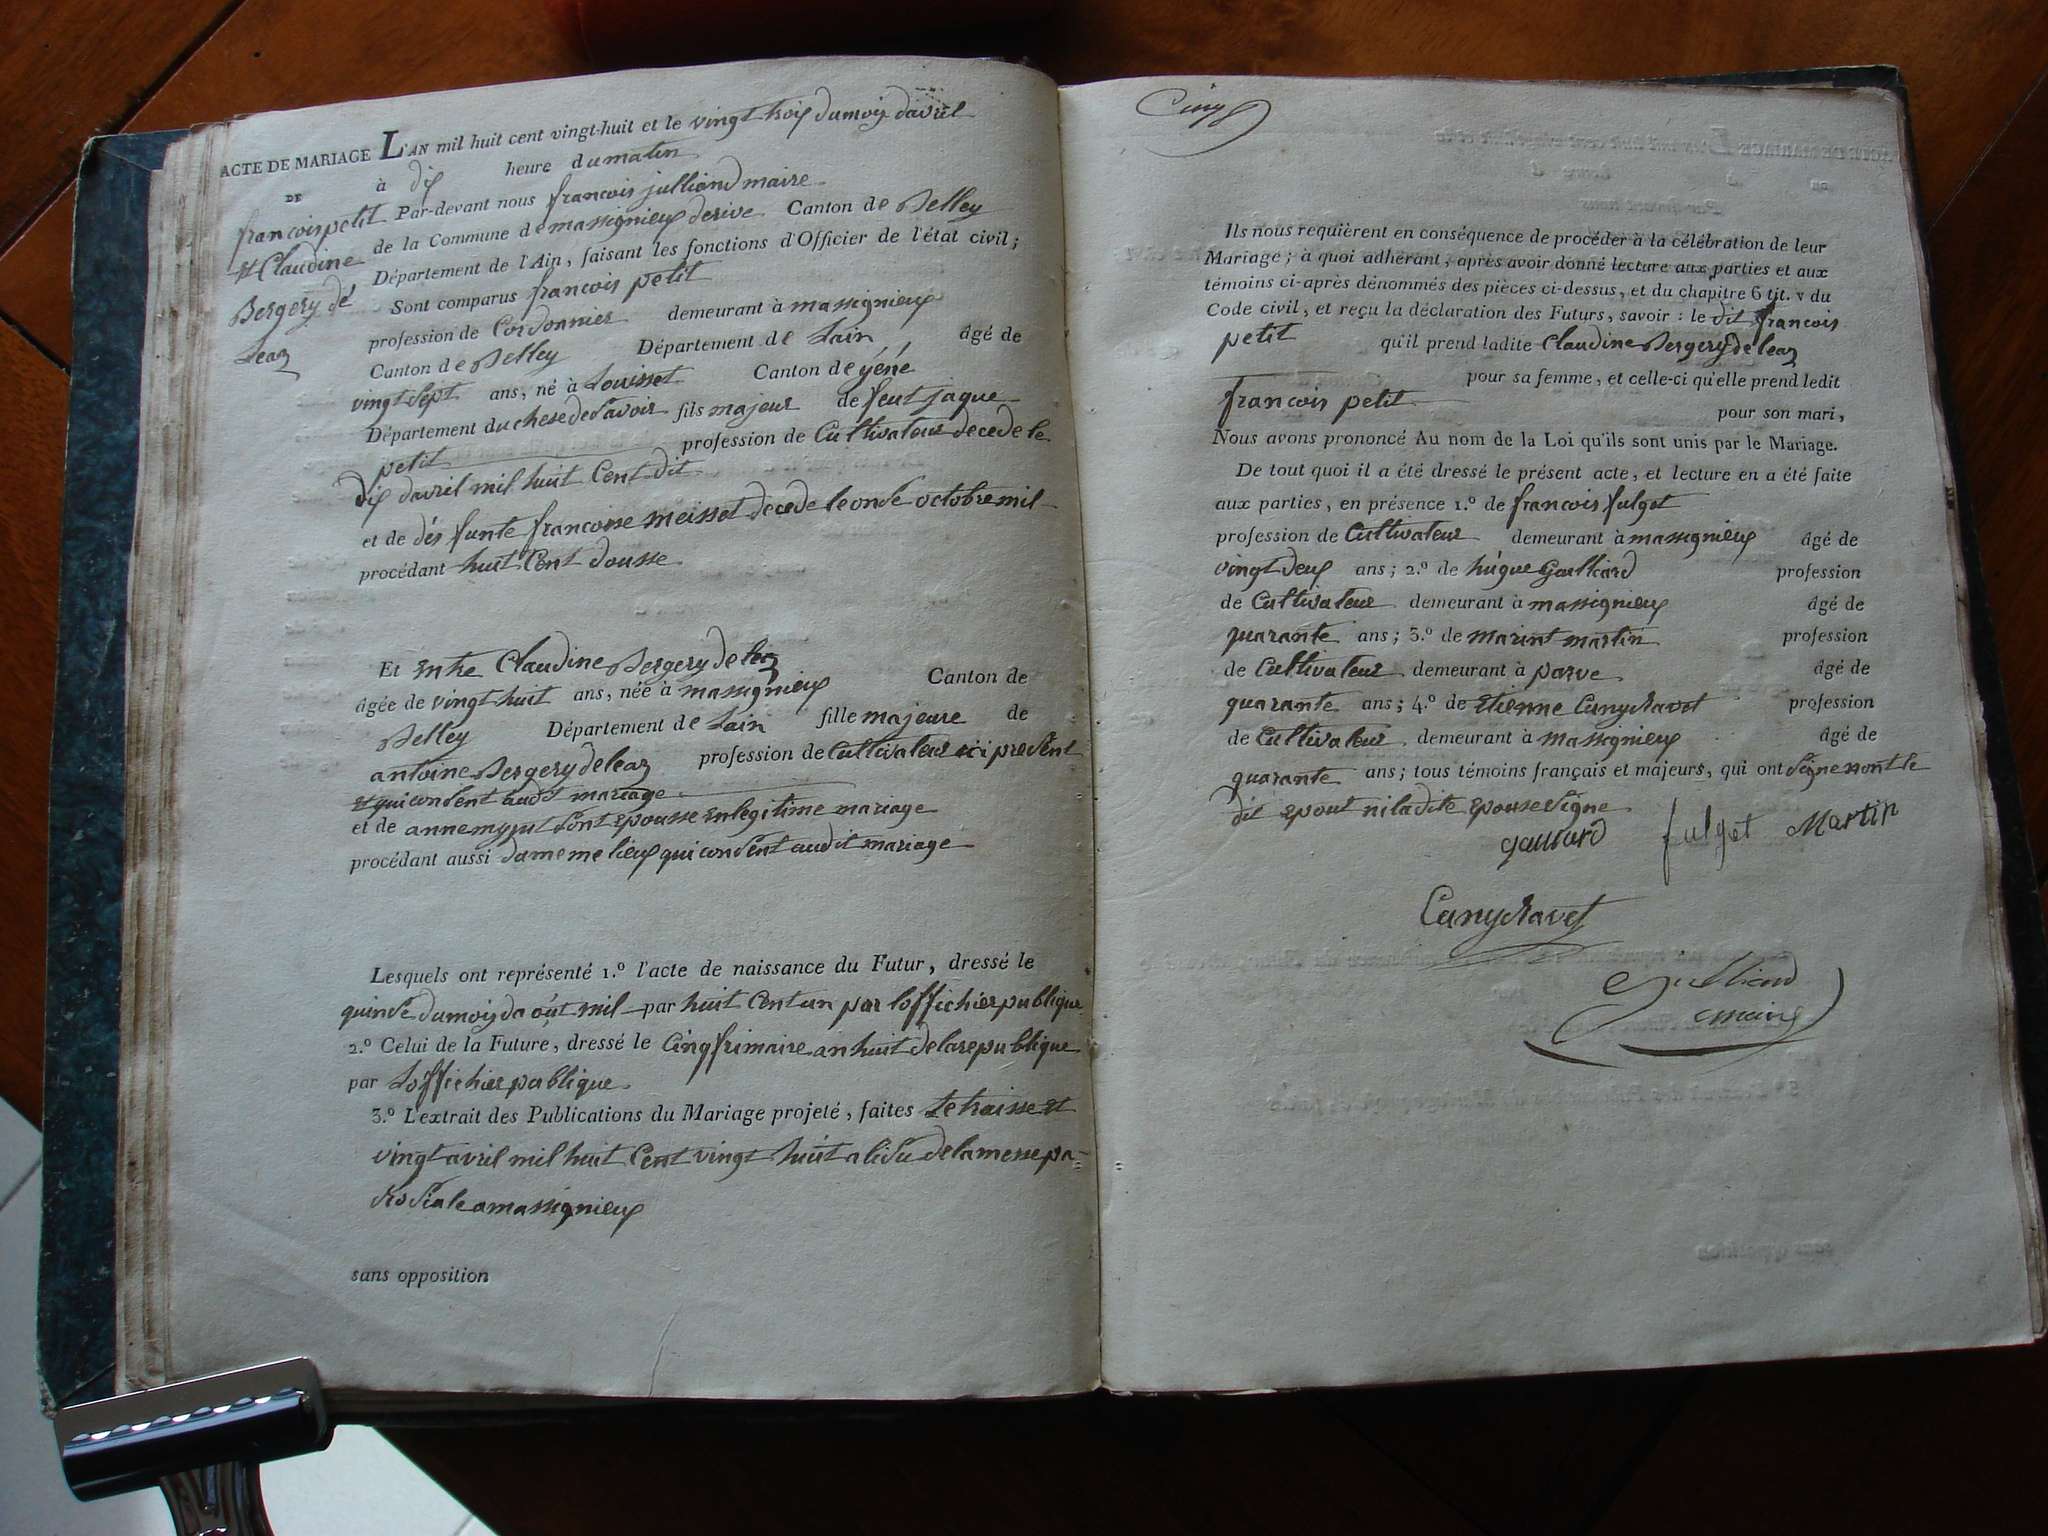 ACTE DE MARIAGE L'AN mil huit cent vingt-huit et le vingt trois du mois davril
DE à dix heure du matin
françois petit Par-devant nous françois julliand maire
et Claudine de la Commune de massignieux de rive Canton de Belley
Bergery dé Département de l'Ain, faisant les fonctions d'Officier de l'état civil;
leaz Sont comparus françois petit
profession de Cordonnier demeurant à massignieux
Canton de Belley Département de Lain âgé de
vingt sept ans, né à Louisset Canton de yéné
Département duchese de Savoir fils majeur de feut jaque
petit profession de Cultivateur decede le
dix davril mil huit Cent dit
et de dés funte francoise meisset decede le onse octobre mil
procédant huit Cent dousse
Et Entre Claudine Bergery de leaz
âgée de vingt huit ans, née à massignieux Canton de
Belley Département de Lain fille majeure de
antoine Bergery de leaz profession de Cultivateur ici present
et qui consent audit mariage
et de anne sont epousse en legitime mariage
procédant aussi dameme lieux qui consent audit mariage
Lesquels ont représenté 1.º l'acte de naissance du Futur, dressé le
quinse du mois da oút mil par huit Cent un par loffichier publique
2.º Celui de la Future, dressé le Cinq frimaire an huit de la republique
par Loffichier publique
3.º L'extrait des Publications du Mariage projeté, faites Le traisse et
vingt avril mil huit Cent vingt huit a lisu de la messe pa-
rosiale a massignieux
sans opposition
Cinq
Ils nous requièrent en conséquence de procéder à la célébration de leur
Mariage; à quoi adhérant, après avoir donné lecture aux parties et aux
témoins ci-après dénommés des pièces ci-dessus, et du chapitre 6 tit. v du
Code civil, et reçu la déclaration des Futurs, savoir : le dit françois
petit qu'il prend ladite Claudine Bergery de leaz
pour sa femme, et celle-ci qu'elle prend ledit
françois petit pour son mari,
Nous avons prononcé Au nom de la Loi qu'ils sont unis par le Mariage.
De tout quoi il a été dressé le présent acte, et lecture en a été faite
aux parties, en présence 1.º de françois fulget
profession de Cultivateur demeurant à massignieux âgé de
vingt deux ans; 2.º de húgue Gaulliard profession
de Cultivateur demeurant à massignieux âgé de
quarante ans; 3.º de marint martin profession
de Cultivateur demeurant à parve âgé de
quarante ans; 4.º de Etienne Cunychavet profession
de Cultivateur demeurant à massignieux âgé de
quarante ans; tous témoins français et majeurs, qui ont signe nont le
dit epout ni la dite epouse signe
fulget Martin
Julliand
maire